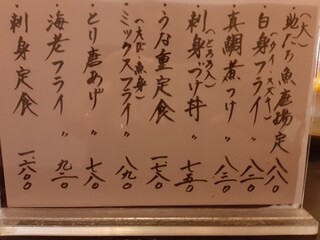 (大)
地だち魚産場定 八八〇
(タイ・スズキ)
・白身フライ〃 八二〇
・真鯛煮つけ〃 八三〇
(とろろ入)
・刺身づけ丼 七五〇
・うな重定食 一七八〇
(えび・魚・身)
・ミックスフライ〃 八九〇
・とり唐あげ〃 七八〇
・海老フライ〃 九二〇
・刺身定食 一、六〇〇